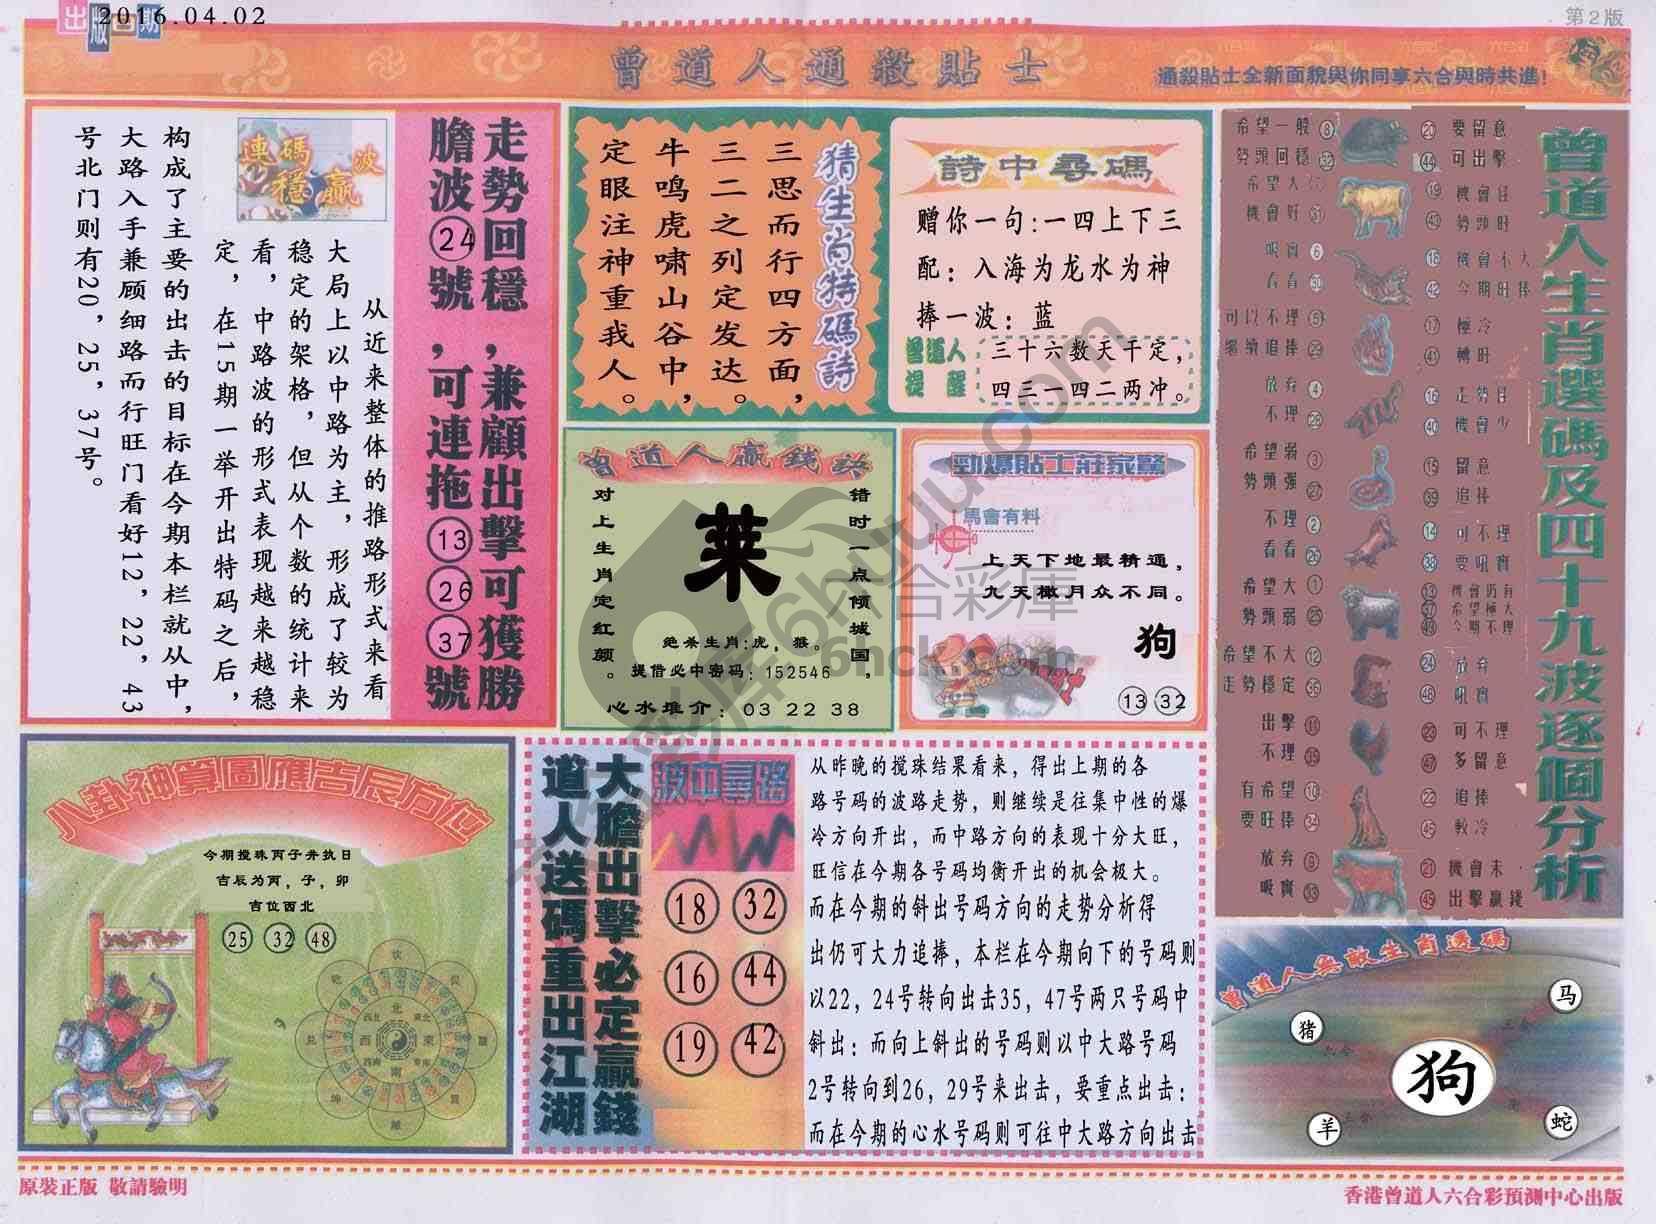 出版日期
2016.04.02
第2版
曾道人通殺貼士
通殺貼士全新面貌與你同享六合與時共進!
走勢回穩,兼顧出擊可獲勝
膽波24號,可連拖132637號
連碼
穩贏
波
从近来整体的推路形式来看
大局上以中路为主，形成了较为
稳定的架格，但从个数的统计来
看，中路波的形式表现越来越稳
定，在15期一举开出特码之后，
构成了主要的出击的目标在今期本栏就从中，
大路入手兼顾细路而行旺门看好12，22，43
号北门则有20，25，37号。
猜生肖特碼詩
三思而行四方面，
三二之列定发达。
牛鸣虎啸山谷中，
定眼注神重我人。
詩中尋碼
赠你一句:一四上下三
配：入海为龙水为神
捧一波：蓝
曾道人
提醒
三十六数天干定，
四三一四二两冲。
曾道人贏錢訣
错时一点倾城国，
对上生肖定红颜。
莱
绝杀生肖:虎，猴。
提借必中密码：152546
心水推介：03 22 38
勁爆貼士莊家驚
馬會有料
上天下地最精通，
九天橄月众不同。
狗
13 32
曾道人生肖選碼及四十九波逐個分析
希望一般 8
勢頭回穩 32
20 要留意
44 可出擊
希望大
機會好 31
19 機會旺
43 勢頭旺
吸實 6
看看 30
18 機會不大
42 今期旺捧
可以不理 5
繼續追捧 29
17 極冷
41 轉旺
放弃 4
不理 28
16 走勢旺
40 機會少
希望弱 3
勢頭强 27
15 留意
39 追捧
不理 2
看看 26
14 可不理
38 要吼實
希望大 1
勢頭弱 25
13 機會仍有
37 希望極大
49 今期不理
希望不大 12
走勢穩定 36
24 放弃
48 吼實
出擊 11
不理 35
23 可不理
47 多留意
有希望 10
要旺捧 34
22 追捧
45 較冷
放弃 9
吸實 33
21 機會未
45 出擊贏錢
八卦神算圖應吉辰方位
今期搅珠丙子井执日
吉辰为丙，子，卯
吉位西北
25 32 48
大膽出擊必定贏錢
道人送碼重出江湖
波中尋路
18 32
16 44
19 42
从昨晚的搅珠结果看来，得出上期的各
路号码的波路走势，则继续是往集中性的爆
冷方向开出，而中路方向的表现十分大旺，
旺信在今期各号码均衡开出的机会极大。
而在今期的斜出号码方向的走势分析得
出仍可大力追捧，本栏在今期向下的号码则
以22，24号转向出击35，47号两只号码中
斜出：而向上斜出的号码则以中大路号码
2号转向到26，29号来出击，要重点出击：
而在今期的心水号码则可往中大路方向出击
曾道人無敵生肖選碼
马
猪
狗
羊
蛇
原裝正版 敬請驗明
香港曾道人六合彩預測中心出版